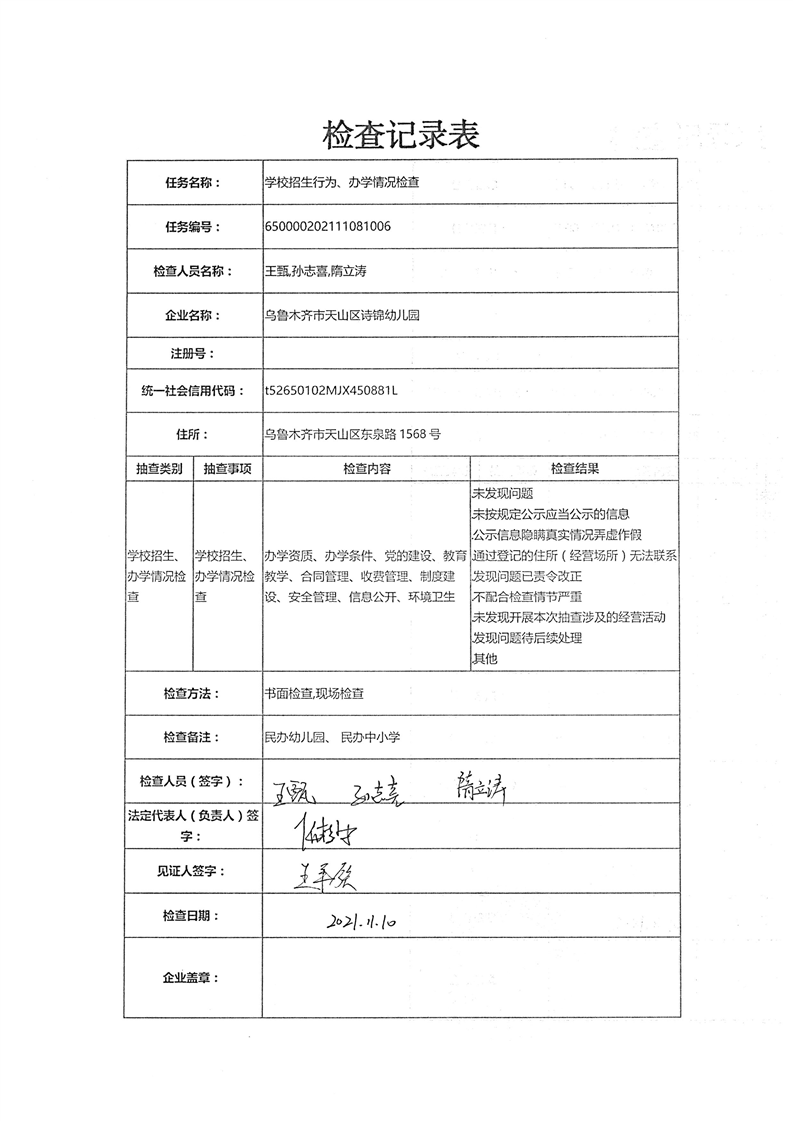 检查记录表
任务名称： 学校招生行为、办学情况检查
任务编号： 650000202111081006
检查人员名称： 王甄,孙志喜,隋立涛
企业名称： 乌鲁木齐市天山区诗锦幼儿园
注册号：
统一社会信用代码： t52650102MJX450881L
住所： 乌鲁木齐市天山区东泉路 1568 号
抽查类别 抽查事项 检查内容 检查结果
学校招生、
办学情况检
查
学校招生、
办学情况检
查
办学资质、办学条件、党的建设、教育
教学、合同管理、收费管理、制度建
设、安全管理、信息公开、环境卫生
.未发现问题
.未按规定公示应当公示的信息
.公示信息隐瞒真实情况弄虚作假
.通过登记的住所（经营场所）无法联系
.发现问题已责令改正
.不配合检查情节严重
.未发现开展本次抽查涉及的经营活动
.发现问题待后续处理
.其他
检查方法： 书面检查,现场检查
检查备注： 民办幼儿园、 民办中小学
检查人员（签字）： 王甄 孙志喜 隋立涛
法定代表人（负责人）签
字：
见证人签字：
检查日期： 2021.11.10
企业盖章：